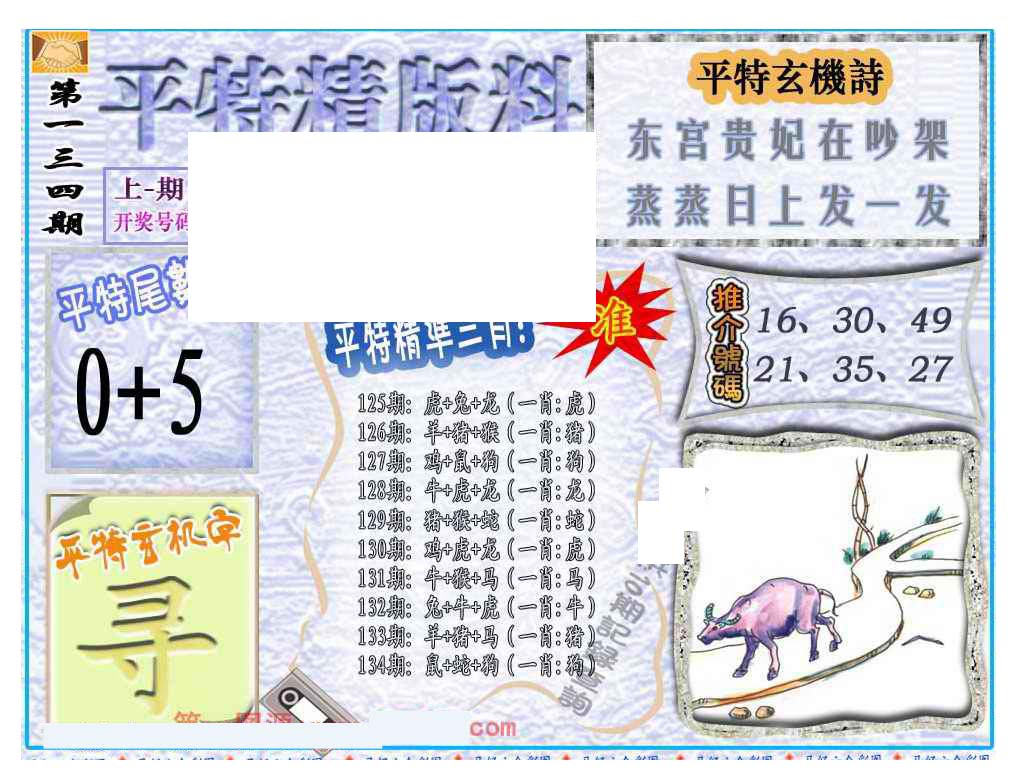 第一三四期
平特精版料
上-期
开奖号码
平特玄機詩
东宫贵妃在吵架
蒸蒸日上发一发
平特尾數
0+5
平特精準三肖!
准
推介號碼
16、30、49
21、35、27
125期: 虎+兔+龙 (一肖:虎)
126期: 羊+猪+猴 (一肖:猪)
127期: 鸡+鼠+狗 (一肖:狗)
128期: 牛+虎+龙 (一肖:龙)
129期: 猪+猴+蛇 (一肖:蛇)
130期: 鸡+虎+龙 (一肖:虎)
131期: 牛+猴+马 (一肖:马)
132期: 兔+牛+虎 (一肖:牛)
133期: 羊+猪+马 (一肖:猪)
134期: 鼠+蛇+狗 (一肖:狗)
期記錄查詢
平特玄机字
寻
com